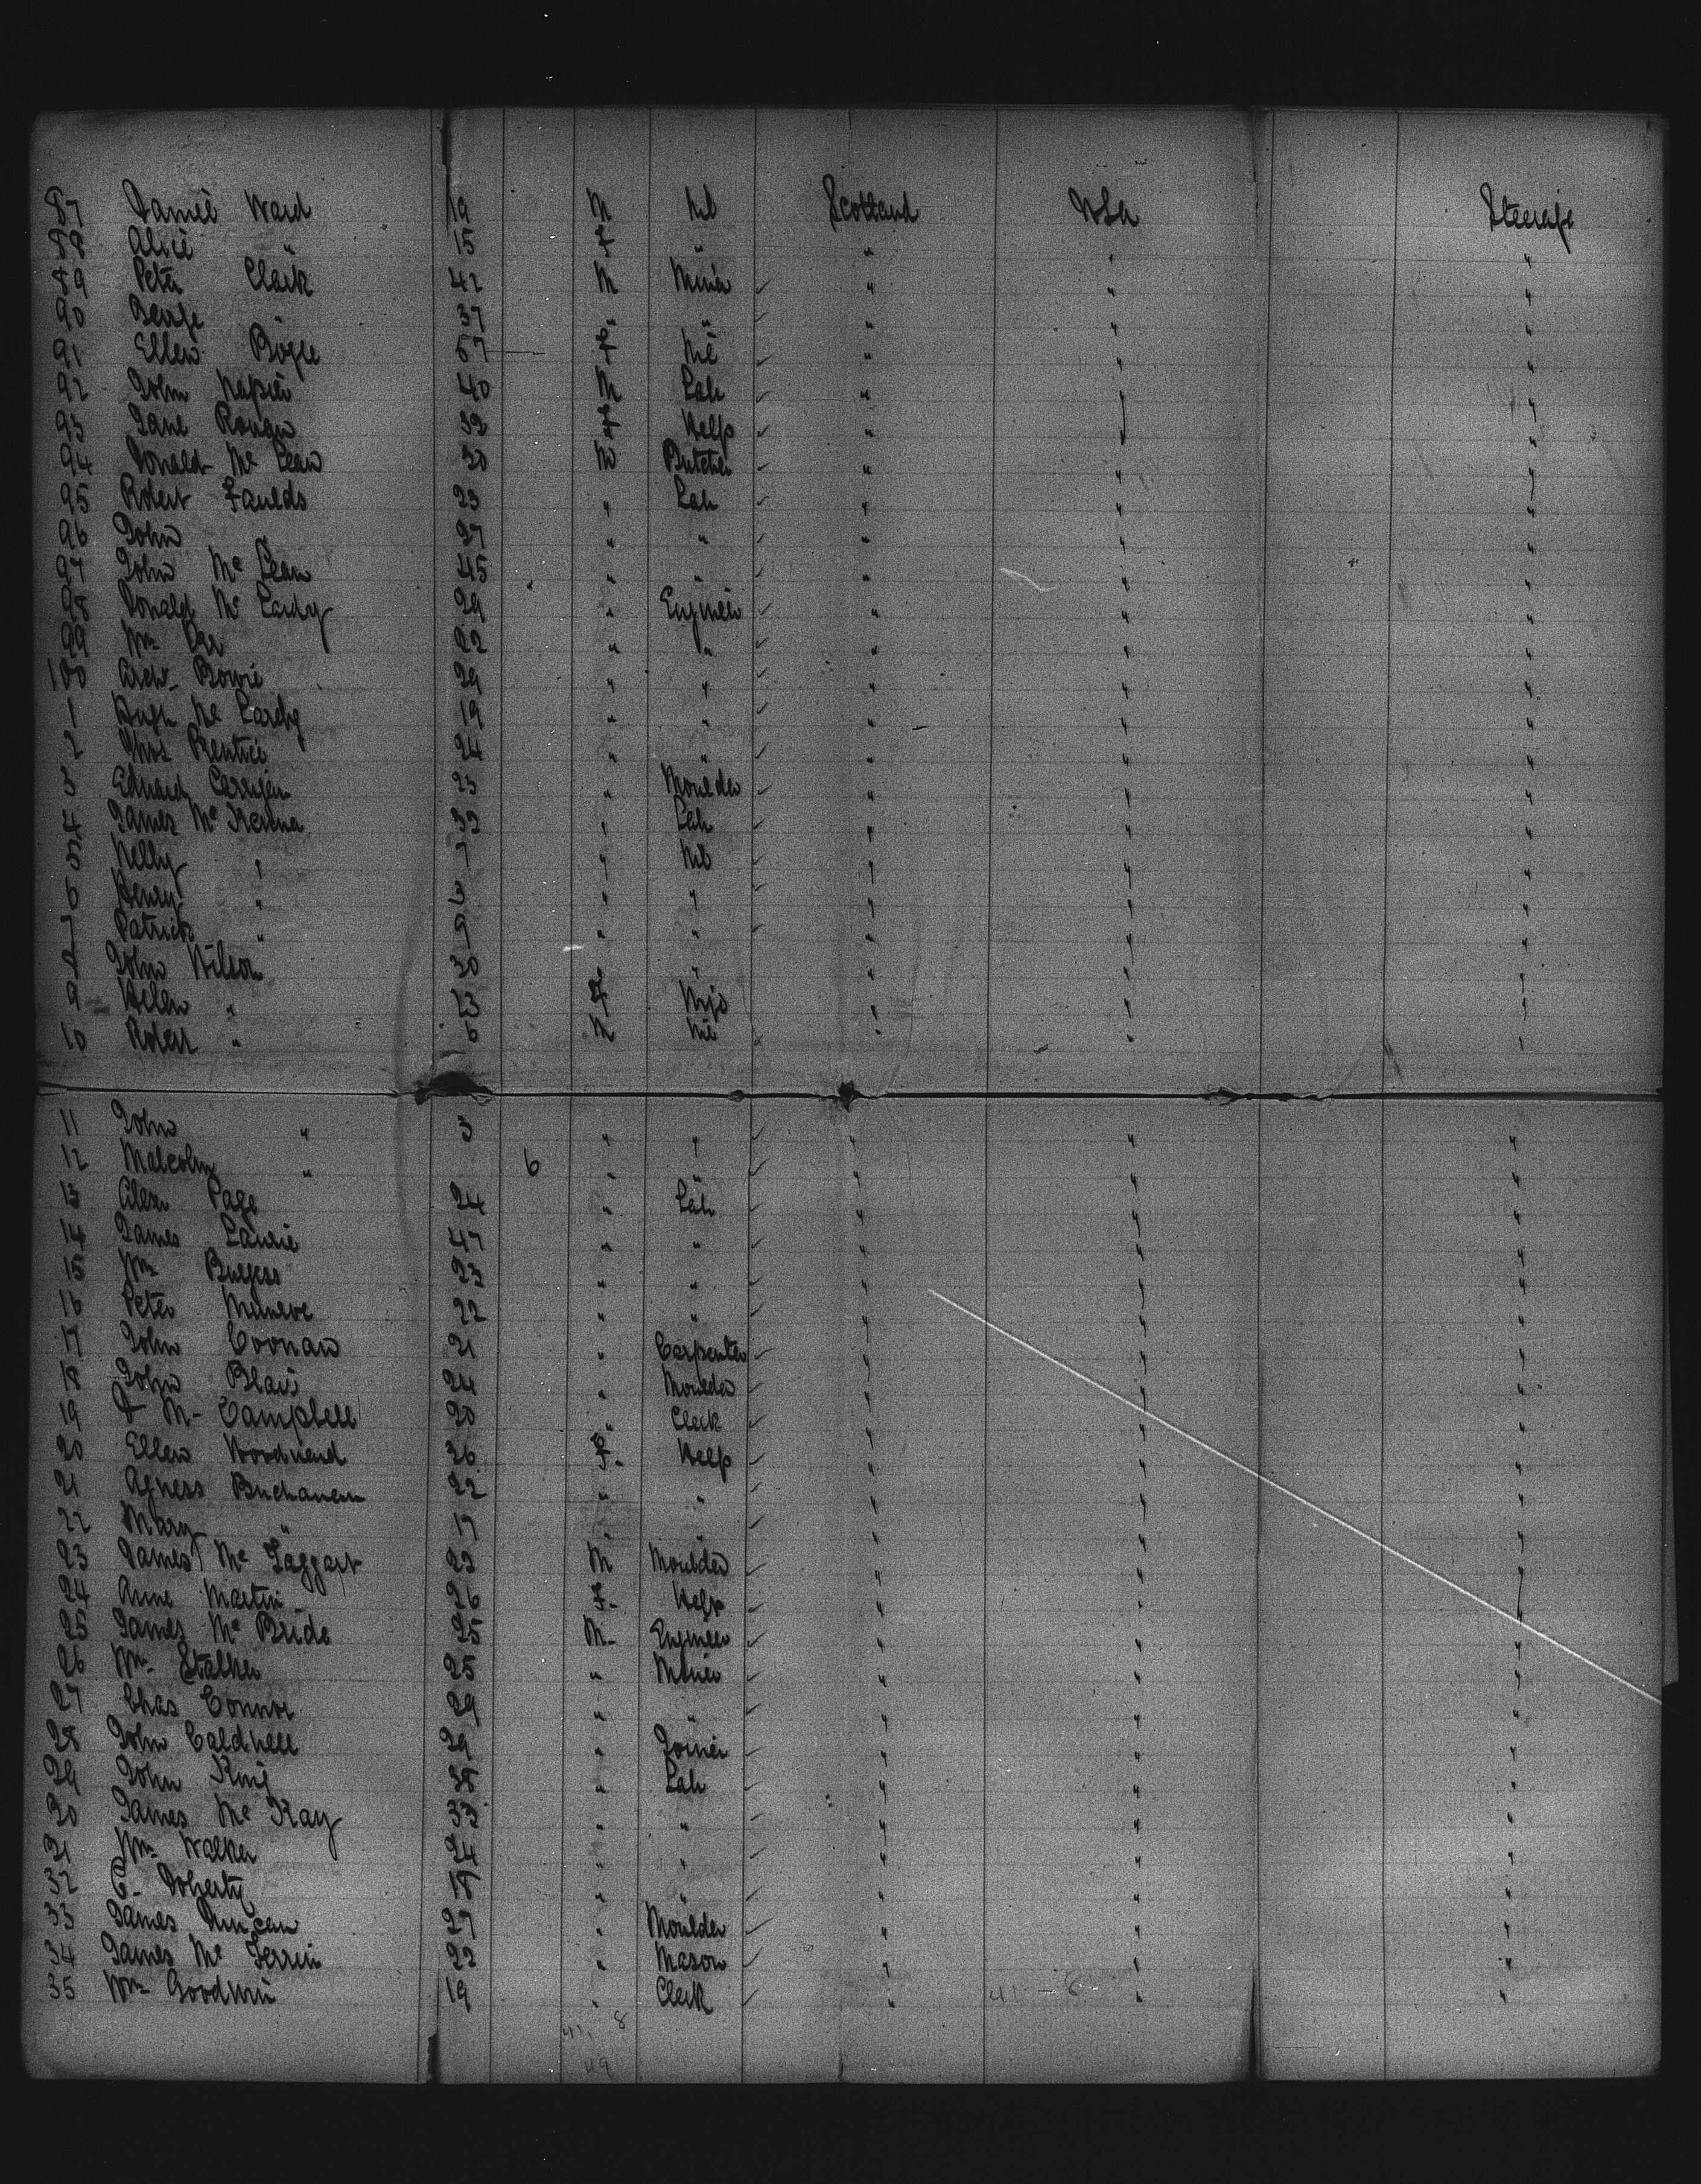 87 Daniel Ward 19 M Nil Scotland USA Steerage
88 Alice " 15 F " " " "
89 Peter Clark 42 M Miner " " "
90 George " 37 " " " " "
91 Ellen Bogle 57 F Nil " " "
92 John Napier 40 M Lab " " "
93 Jane Rowan 32 F Help " " "
94 Donald Mc Lean 30 M Butcher " " "
95 Robert Faulds 23 " Lab " " "
96 John " 27 " " " " "
97 John Mc Lean 45 " " " " "
98 Donald Mc Lardy 29 " Engineer " " "
99 Wm Orr 22 " " " " "
100 Archd Bowie 29 " " " " "
1 Hugh Mc Lardy 19 " " " " "
2 Thos Prentice 24 " " " " "
3 Edward Carrigan 23 " Moulder " " "
4 James Mc Kenna 32 " Lab " " "
5 Nelly " 7 " Nil " " "
6 Henry " 3 " " " " "
7 Patrick " 9 " " " " "
8 John Wilson 30 " " " " "
9 Helen " F Wife " " "
10 Robert " 6 M Nil " " "
11 John " 3 " " " "
12 Malcolm " 6 " " " " "
13 Alexr Page 24 " Lab " " "
14 James Laurie 47 " " " " "
15 Wm Burgess 23 " " " " "
16 Peter Munroe 22 " " " " "
17 John Coonan 21 " Carpenter " " "
18 John Blair 24 " Moulder " " "
19 M- Campbell 20 " Clerk " " "
20 Ellen Woodward 36 F- Help " " "
21 Agness Buchanan 22 " " " " "
22 Mary " 17 " " " " "
23 James Mc Taggart 22 M Moulder " " "
24 Anne Martin 26 F- Help " " "
25 James Mc Bride 25 M- Engineer " " "
26 Wm Stalker 25 " Miner " " "
27 Chas Connor 29 " " " " "
28 John Caldwell 29 " Joiner " " "
29 John King 38 " Lab " " "
30 James Mc Kay 33 " " " " "
31 Wm Walker 24 " " " " "
32 C- Doherty 18 " " " " "
33 James Duncan 27 " Moulder " " "
34 James Mc Ferrin 22 " Mason " " "
35 Wm Goodwin 19 " Clerk " " "
41 - 8
41. 8
49